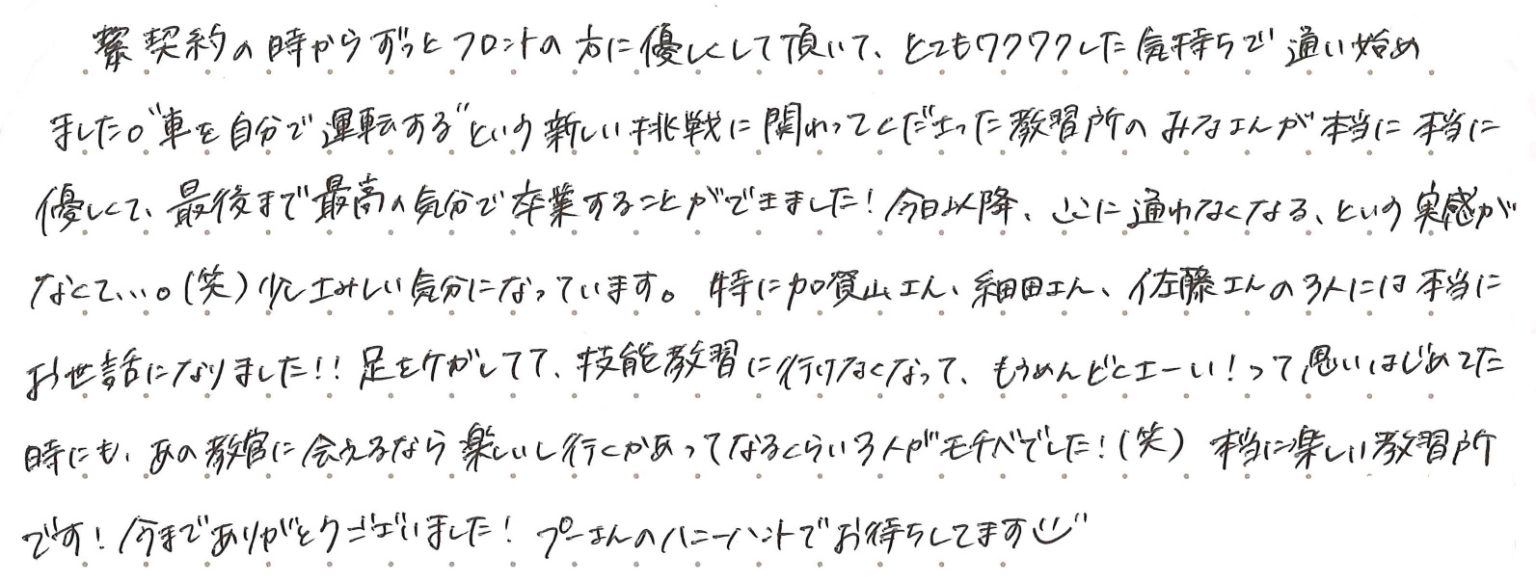 契約の時からずっとフロントの方に優しくして頂いて、とてもワクワクした気持ちで通い始め
ました。"車を自分で運転する"という新しい挑戦に関わってくださった教習所のみなさんが本当に本当に
優しくて、最後まで最高の気分で卒業することができました！今日以降、ここに通わなくなる、という実感が
なくて…。(笑)少しさみしい気分になっています。特に加賀山さん、細田さん、佐藤さんの3人には本当に
お世話になりました!!足をケガしてて、技能教習に行けなくなって、もうめんどくさーい！って思いはじめてた
時にも、あの教官に会えるなら楽しいし行くかあってなるくらい3人がモチベでした！(笑)本当に楽しい教習所
です！今までありがとうございました！プーさんのハニーハントでお待ちしてます